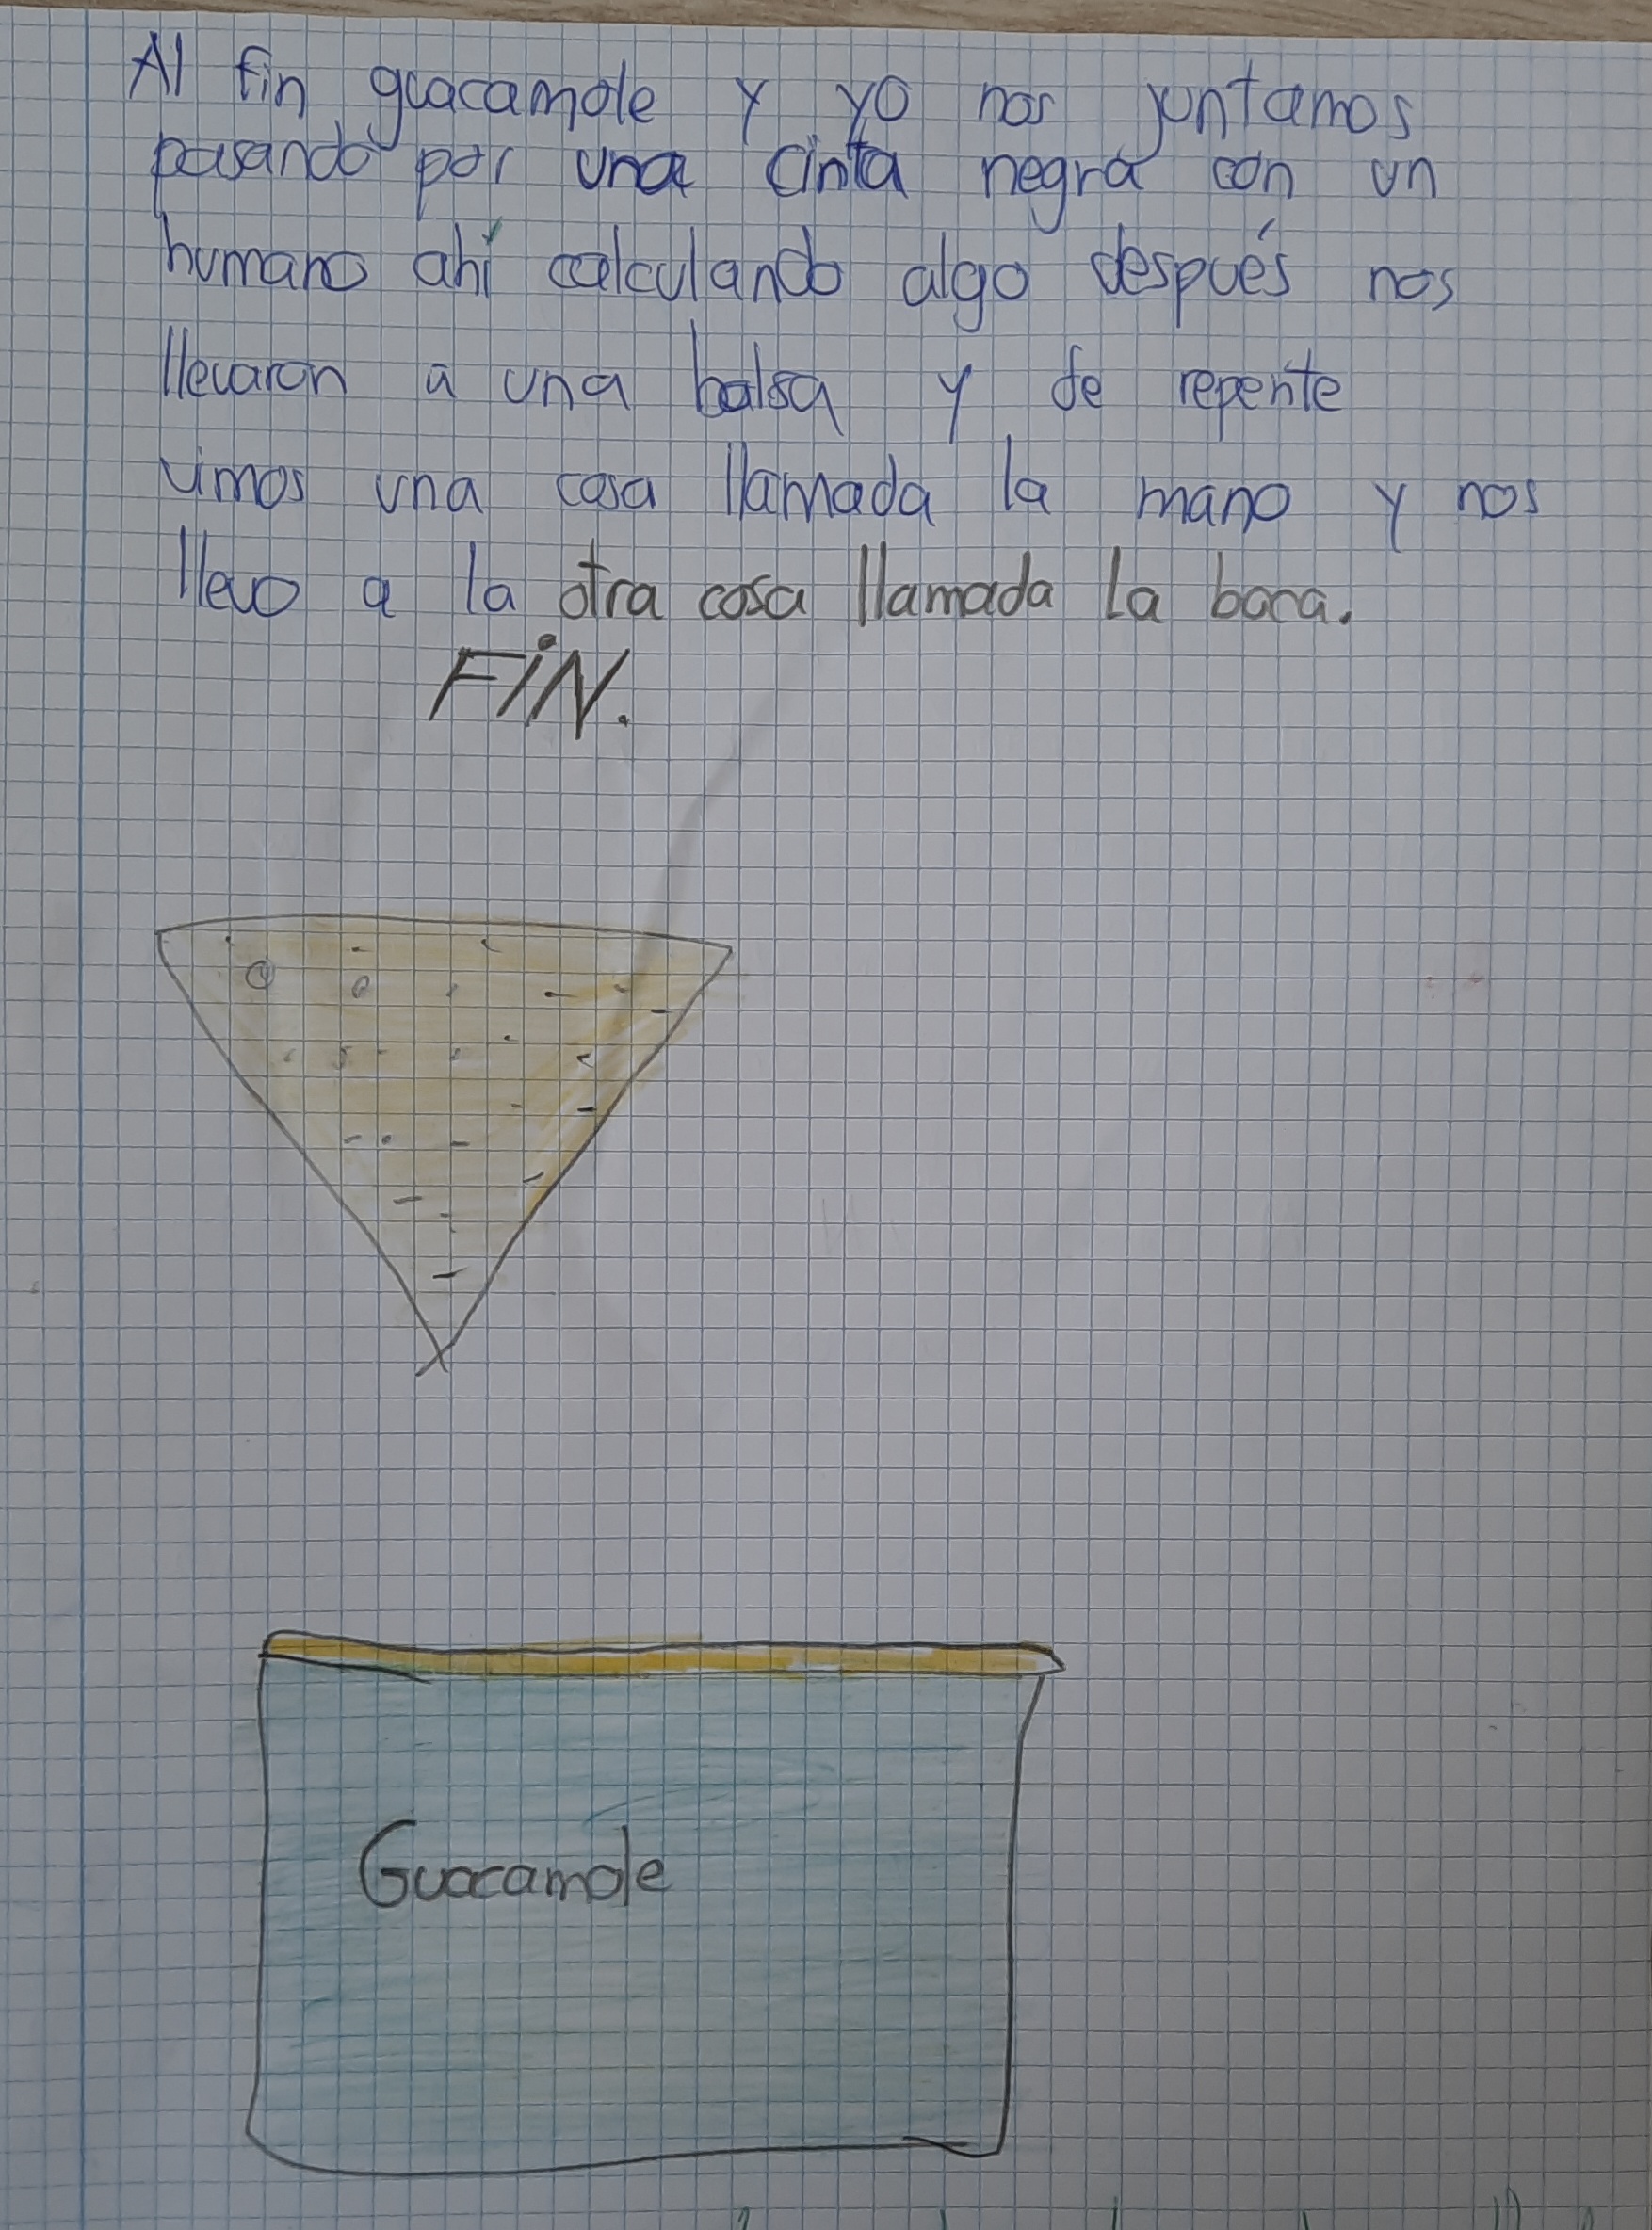 Al fin guacamole y yo nos juntamos
pasando por una cinta negra con un
humano ahí calculando algo después nos
llevaron a una balsa y de repente
vimos una cosa llamada la mano y nos
llevo a la otra cosa llamada la boca.
FiN.
Guacamole